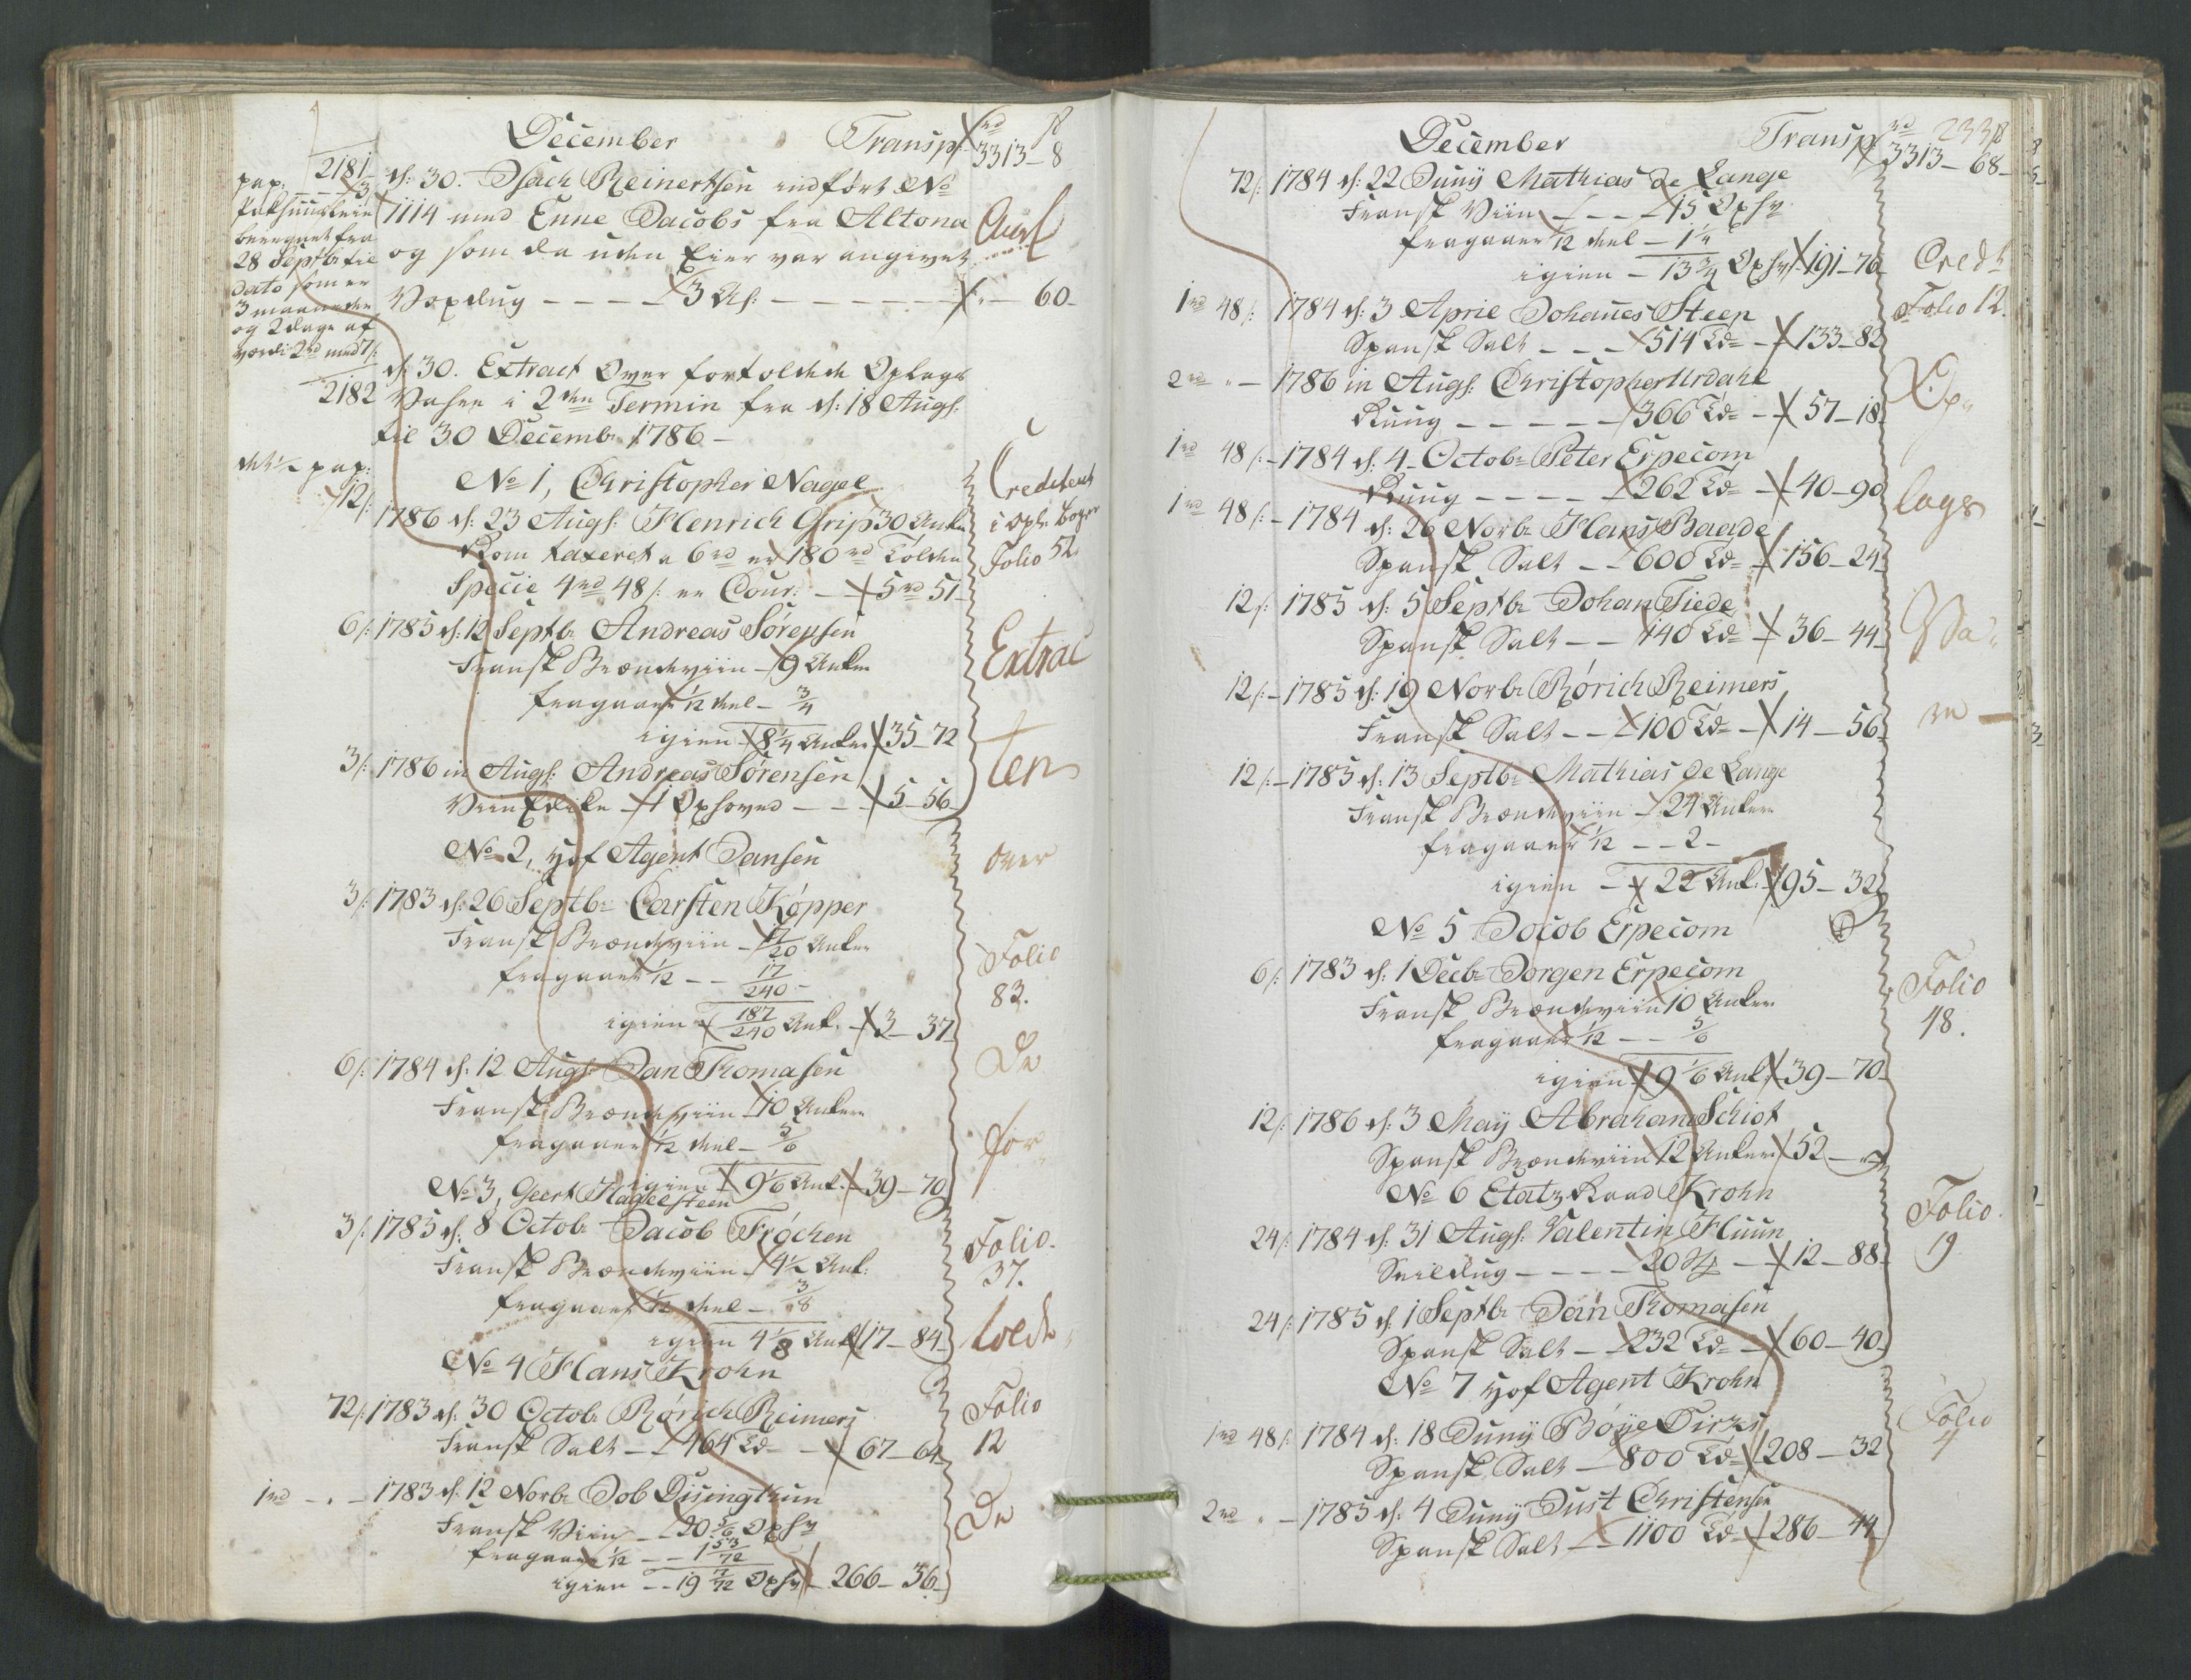 December Transp 3313 - 8
2181
pap: 3
Pakhuusleie
beregnet fra
28 Septb: til
dato som er
3 maaneder
og 2 dage af
værdi 2 rd med 7 s:
d: 30. Isach Reinertsen indført No
1114 med Enne Jacobs fra Altona
og som da uden Eier var angivet
Voxdug - - - - 3 - - - - - 60 -
2182
d: 30. Extract Over fortoldede Oplags
Vahre i 2den Termin fra d: 18 Augs:
til 30 Decemb: 1786 -
pap:
12 s:
No 1, Christopher Nagel
1786 d: 23 Augs: Henrich Grip 30 Ank:
Rom taxeret a 6 rd er 180 rd Tolden
Specie 4 rd 48 s: er Cour: - 5 rd 51 -
Crediteret
i Opl: Boger
Folio 52
6 s: 1785 d: 12 Septb: Andreas Sørensen
Fransk Brændeviin - 9 Anker
fragaaer 1/12 deel - 3/4
igien - 8 1/4 Anker 35 - 72
Extrac
3 s: 1786 in Augs: Andreas Sørensen
Viin Edike - 1 Oxhoved - - - 5 - 56 -
ten
No 2, Hof Agent Jansen
over
3 s: 1783 d: 26 Septb: Carsten Köpper
Fransk Brændeviin - 17/20 Anker
fragaaer 1/12 - - 17/240 -
igien - 187/240 Ank: - 3 - 37
Folio
83.
6 s: 1784 d: 12 Augs: Jan Thomasen
Fransk Brændeviin - 10 Anker
fragaaer 1/12 deel - 5/6
igien - 9 1/6 Ank: - 39 - 70
De
for
No 3, Geert Hagelsteen
3 s: 1785 d: 8 Octob: Jacob Fröchen
Fransk Brændeviin - 4 1/2 Ank:
fragaaer 1/12 deel - 3/8
igien 4 1/8 Ank: 17 - 84
Folio.
37.
tolde
No 4 Hans Krohn
72 s: 1783 d: 30 Octob: Rörich Reimers
Fransk Salt - - 464 Td - - 67 - 64
Folio
12
1 rd - " - 1783 d: 12 Novb: Job
Fransk Viin - - 20 5/6 Oxh
fragaaer 1/12 - - 1 53/72
igien - - 19 7/72 Oxh - 266 - 36
De
December Transp 3313 - 68 -
233
72 s: 1784 d: 22 Juny Mathias de Lange
Fransk Viin - - - - 15 Oxh
fragaaer 1/12 deel - 1 1/4
igien - 13 3/4 Oxh 191 - 70
Credt
Folio 12.
1 rd 48 s: 1784 d: 3 April Johanes Steen
Spansk Salt - - - 514 Td - 133 - 82
2 rd " - 1786 in Augs: Christopher Urdahl
Ruug - - - - - 366 Td - 57 - 18
Op
1 rd 48 s: - 1784 d: 4 Octob: Peter Erpecom
Ruug - - - - 262 Td - 40 - 90
lags
1 rd 48 s: - 1784 d: 26 Novb: Hans Baade
Spansk Salt - - 600 Td - 156 - 24
12 s: 1785 d: 5 Septb: Johan Tiede
Spansk Salt - - 140 Td - 36 - 44
Va
12 s: - 1785 d: 19 Novb: Rörich Reimers
Fransk Salt - - 100 Td - 14 - 56
re -
12 s: - 1785 d: 13 Septb: Mathias de Lange
Fransk Brændeviin - 24 Anker
fragaaer 1/12 - - 2 -
igien - 22 Ank: 95 - 32
No 5 Jocob Erpecom
6 s: 1783 d: 1 Decb: Jørgen Erpecom
Fransk Brændeviin 10 Anker
fragaaer 1/12 - - 5/6
igien 9 1/6 Ank: 39 - 70
Folio
48.
12 s: 1786 d: 3 May Abraham Schiot
Spansk Brændeviin 12 Anker 52 - "
No 6 Etatz Raad Krohn
24 s: 1784 d: 31 Augs: Valentin Huun
Seildug - - - - 20 - 12 - 88
Folio
19
24 s: 1785 d: 1 Septb: Jan Thomasen
Spansk Salt - 232 Td - 60 - 40
No 7 Hof Agent Krohn
1 rd 48 s: 1784 d: 18 Juny Böÿe Dirxs
Spansk Salt - 800 Td 208 - 32
Folio
4
2 rd " - 1785 d: 4 Juny Just Christensen
Spansk Salt - - 1100 Td 286 - 44